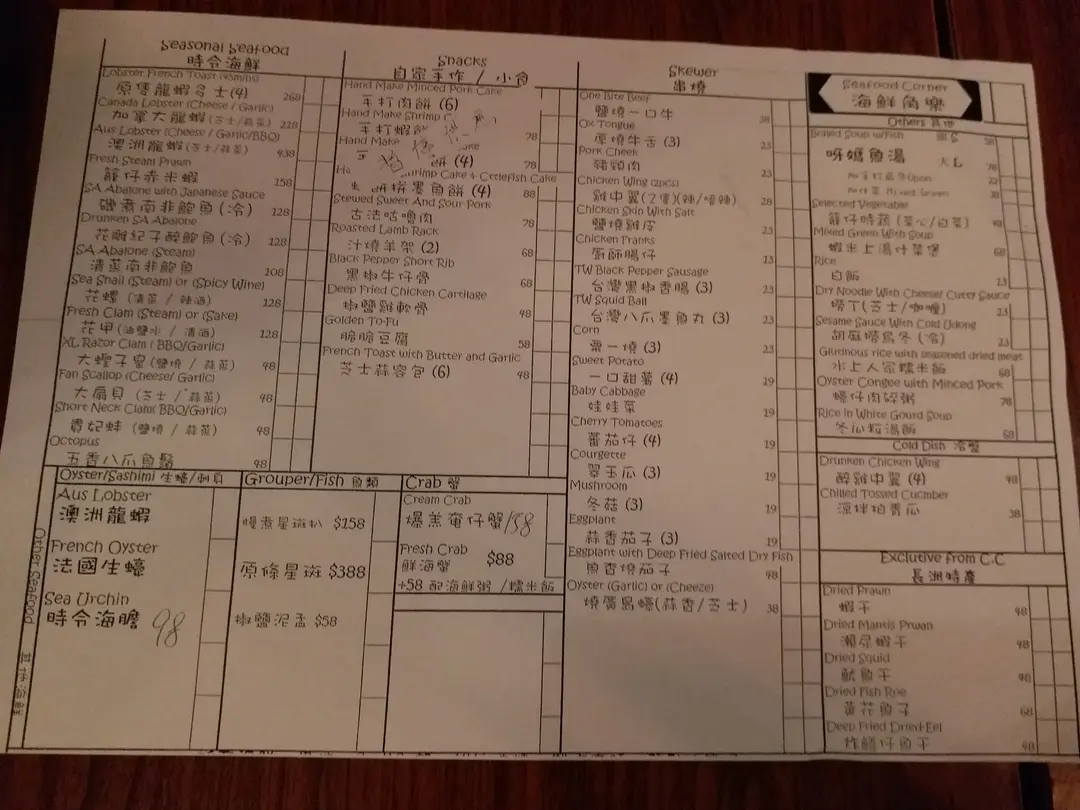 Seasonal Seafood
時令海鮮
Lobster French Toast (4mins)
原隻龍蝦多士(4) 268
Canada Lobster (Cheese / Garlic)
加拿大龍蝦(芝士/蒜茸) 228
Aus Lobster (Cheese / Garlic/BBQ)
澳洲龍蝦(芝士/蒜茸) 438
Fresh Steam Prawn
籠仔赤米蝦 158
SA Abalone with Japanese Sauce
磯煮南非鮑魚(冷) 128
Drunken SA Abalone
花雕紀子醉鮑魚(冷) 128
SA Abalone (Steam)
清蒸南非鮑魚 208
Sea Snail (Steam) or (Spicy Wine)
花螺 (清蒸 / 辣酒) 128
Fresh Clam (Steam) or (Sake)
花甲(油鹽水 / 清酒) 128
XL Razor Clam ( BBQ/Garlic)
大蟶子皇(鹽燒 / 蒜茸) 48
Fan Scallop (Cheese/ Garlic)
大扇貝 (芝士 / 蒜茸) 48
Short Neck Clam( BBQ/Garlic)
貴妃蚌 (鹽燒 / 蒜茸) 48
Octopus
五香八爪魚鬚 48
Snacks
自家手作 / 小食
Hand Make Minced Pork Cake
手打肉餅 (6)
Hand Make Shrimp
手打蝦 78
Hand Make
餅 (4) 78
Shrimp Cake + Cttlefish Cake
餅拼墨魚餅 (4) 88
Stewed Sweet And Sour Pork
古法咕嚕肉 78
Roasted Lamb Rack
汁燒羊架 (2) 68
Black Pepper Short Rib
黑椒牛仔骨 68
Deep Fried Chicken Cartilage
椒鹽雞軟骨 48
Golden To-Fu
脆脆豆腐 58
French Toast with Butter and Garlic
芝士蒜容包 (6) 48
Skewer
串燒
One Bite Beef
鹽燒一口牛 38
Ox Tongue
厚燒牛舌 (3) 23
Pork Cheek
豬頸肉 23
Chicken Wing (2pcs)
雞中翼(2隻)(辣/唔辣) 28
Chicken Skin With Salt
鹽燒雞皮 23
Chicken Franks
廚師腸仔 23
TW Black Pepper Sausage
台灣黑椒香腸 (3) 23
TW Squid Ball
台灣八爪墨魚丸 (3) 23
Corn
粟一燒 (3) 23
Sweet Potato
一口甜薯 (4) 19
Baby Cabbage
娃娃菜 19
Cherry Tomatoes
蕃茄仔 (4) 19
Courgette
翠玉瓜 (3) 19
Mushroom
冬菇 (3) 19
Eggplant
蒜香茄子 (3) 19
Eggplant with Deep Fried Salted Dry Fish
魚香燒茄子 48
Oyster (Garlic) or (Cheeze)
燒廣島蠔(蒜香/芝士) 38
Seafood Corner
海鮮角樂
Others 其他
Boiled Soup w/Fish 細 S 58
呀媽魚湯 大 L 78
Selected Vegetable
籠仔時蔬 (菜心/白菜) 48
Mixed Green With Soup
蝦米上湯什菜堡 68
Rice
白飯 13
Dry Noodle With Cheese/ Cutty Sauce
撈丁(芝士/咖喱) 23
Sesame Sauce With Cold Udong
胡麻撈烏冬 (冷) 23
Glutinous rice with seasoned dried meat
水上人家糯米飯 68
Oyster Congee with Minced Pork
蠔仔肉碎粥 78
Rice in White Gourd Soup
冬瓜粒湯飯 68
Cold Dish 冷盤
Drunken Chicken Wing
醉雞中翼 (4) 48
Chilled Tossed Cucmber
涼拌拍青瓜 38
Exclutive from C.C
長洲特產
Dried Prawn
蝦干 48
Dried Mantis Prwan
瀨尿蝦干 48
Dried Squid
魷魚干 48
Dried Fish Roe
黃花魚子 68
Deep Fried Dried-Eel
炸鱔仔魚干 48
Other Seafood
其他海鮮
Oyster/Sashimi 生蠔/刺身
Aus Lobster
澳洲龍蝦
French Oyster
法國生蠔
Sea Urchin
時令海膽 98
Grouper/Fish 魚類
慢煮星斑扒 $158
原條星斑 $388
椒鹽泥孟 $58
Crab 蟹
Cream Crab
爆羔奄仔蟹 158
Fresh Crab
鮮海蟹 $88
+58 配海鮮粥 /糯米飯